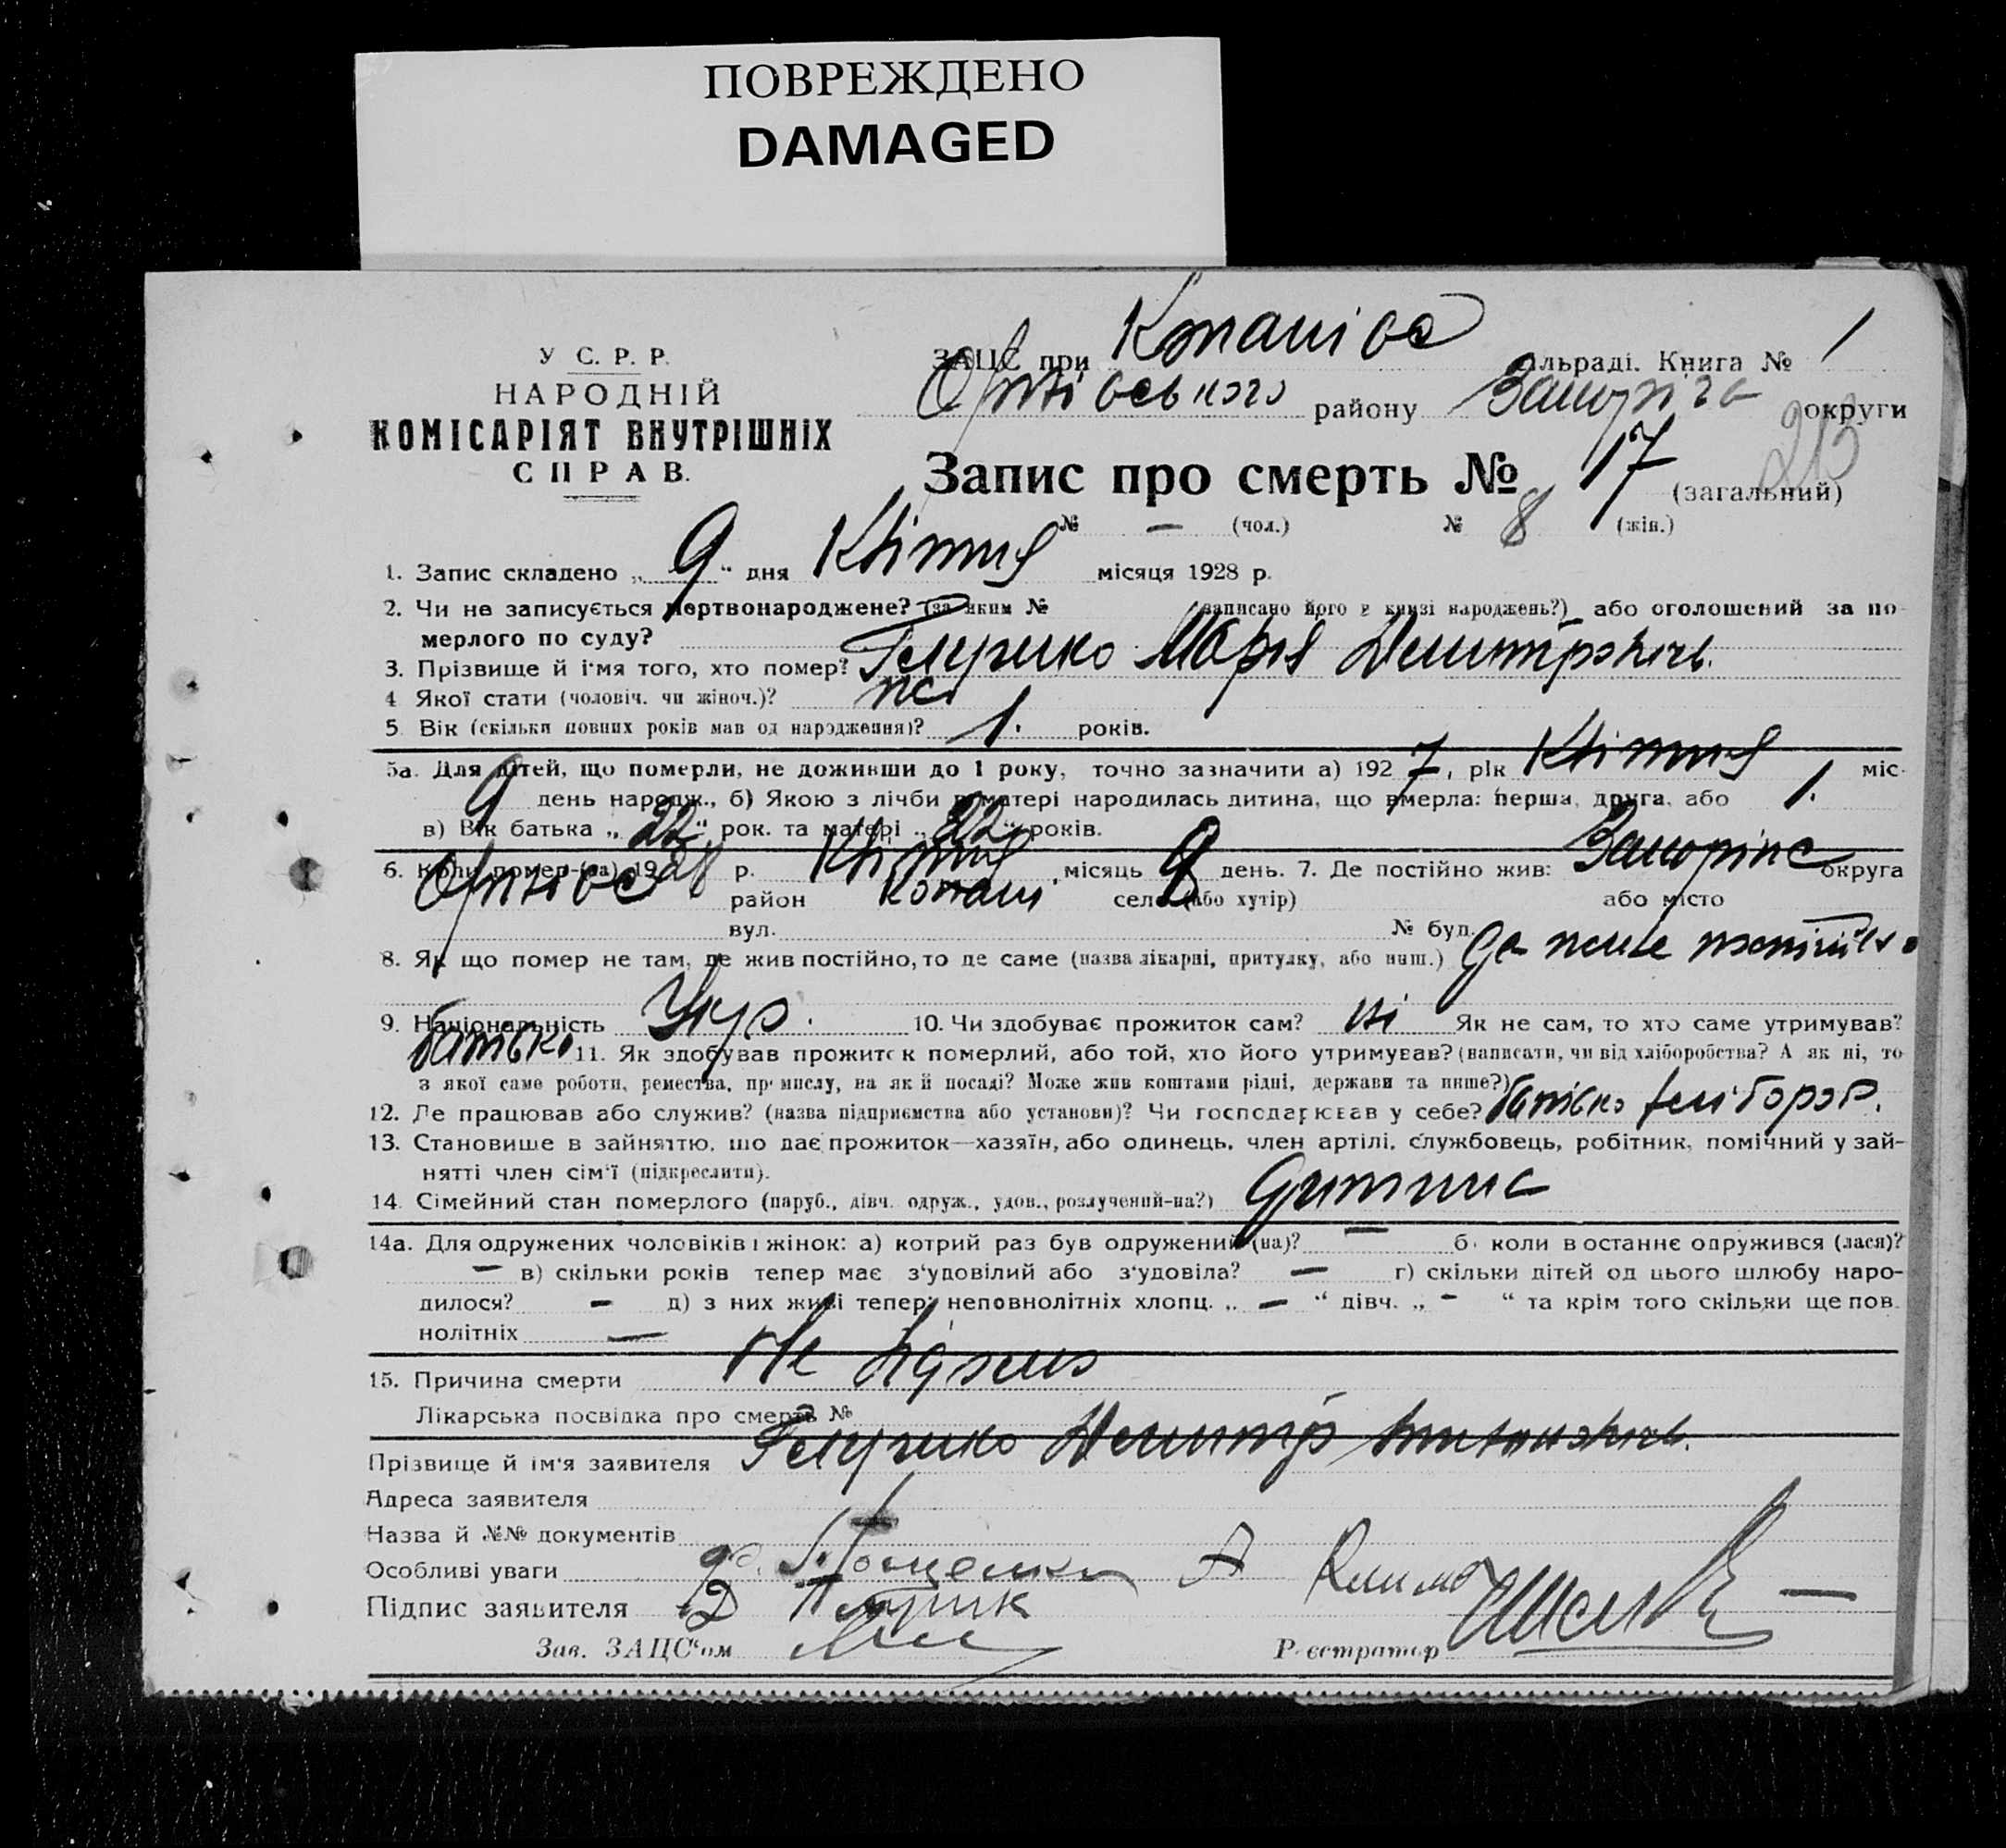 ПОВРЕЖДЕНО
DAMAGED
У С. Р. Р.
НАРОДНІЙ
КОМІСАРІЯТ ВНУТРІШНІХ
СПРАВ.
ЗАЦС при сільраді. Книга № 1
району округи
213
Запис про смерть № 17 (загальний)
№ — (чол.) № 8 (жін.)
1. Запис складено „ 9 “ дня Квітня місяця 1928 р.
2. Чи не записується мертвонароджене? (за яким № записано його в книзі народжень?) або оголошений за по-
мерлого по суду?
3. Прізвище й ім'я того, хто помер? Марія
4 Якої стати (чоловіч. чи жіноч.)?
5. Вік (скільки повних років мав од народження)? 1. років.
5а. Для дітей, що померли, не доживши до 1 року, точно зазначити а) 192 7, рік Квітня міс.
9 день народж., б) Якою з лічби в матері народилась дитина, що вмерла: перша, друга, або 1.
в) Вік батька „ 22 “ рок. та матері „ 22 “ років.
6. Коли помер-(ла) 1928 р. Квітня місяць 9 день. 7. Де постійно жив: округа
район Копані село (або хутір) або місто
вул. № буд.
8. Як що помер не там, де жив постійно, то де саме (назва лікарні, притулку, або инш.) де живе постійно
9. Національність Укр. 10. Чи здобуває прожиток сам? ні Як не сам, то хто саме утримував?
батько 11. Як здобував прожиток померлий, або той, хто його утримував? (написати, чи від хліборобства? А як ні, то
з якої саме роботи, ремества, промислу, на якій посаді? Може жив коштами рідні, держави та инше?)
12. Де працював або служив? (назва підприємства або установи)? Чи господарював у себе? батько хлібороб.
13. Становище в зайняттю, що дає прожиток—хазяїн, або одинець, член артілі, службовець, робітник, помічний у зай-
нятті член сім'ї (підкреслити).
14. Сімейний стан померлого (паруб., дівч. одруж., удов., розлучений-на?) дитина
14а. Для одружених чоловіків і жінок: а) котрий раз був одружений (на)? — б. коли в останнє одружився (лася)?
— в) скільки років тепер має з'удовілий або з'удовіла? — г) скільки дітей од цього шлюбу наро-
дилося? — д) з них живі тепер: неповнолітніх хлопц. „ — “ дівч. „ - “ та крім того скільки ще пов.
нолітніх —
15. Причина смерти Не відомо
Лікарська посвідка про смерть №
Прізвище й ім'я заявителя
Адреса заявителя
Назва й №№ документів
Особливі уваги
Підпис заявителя
Зав. ЗАЦС'ом Реєстратор